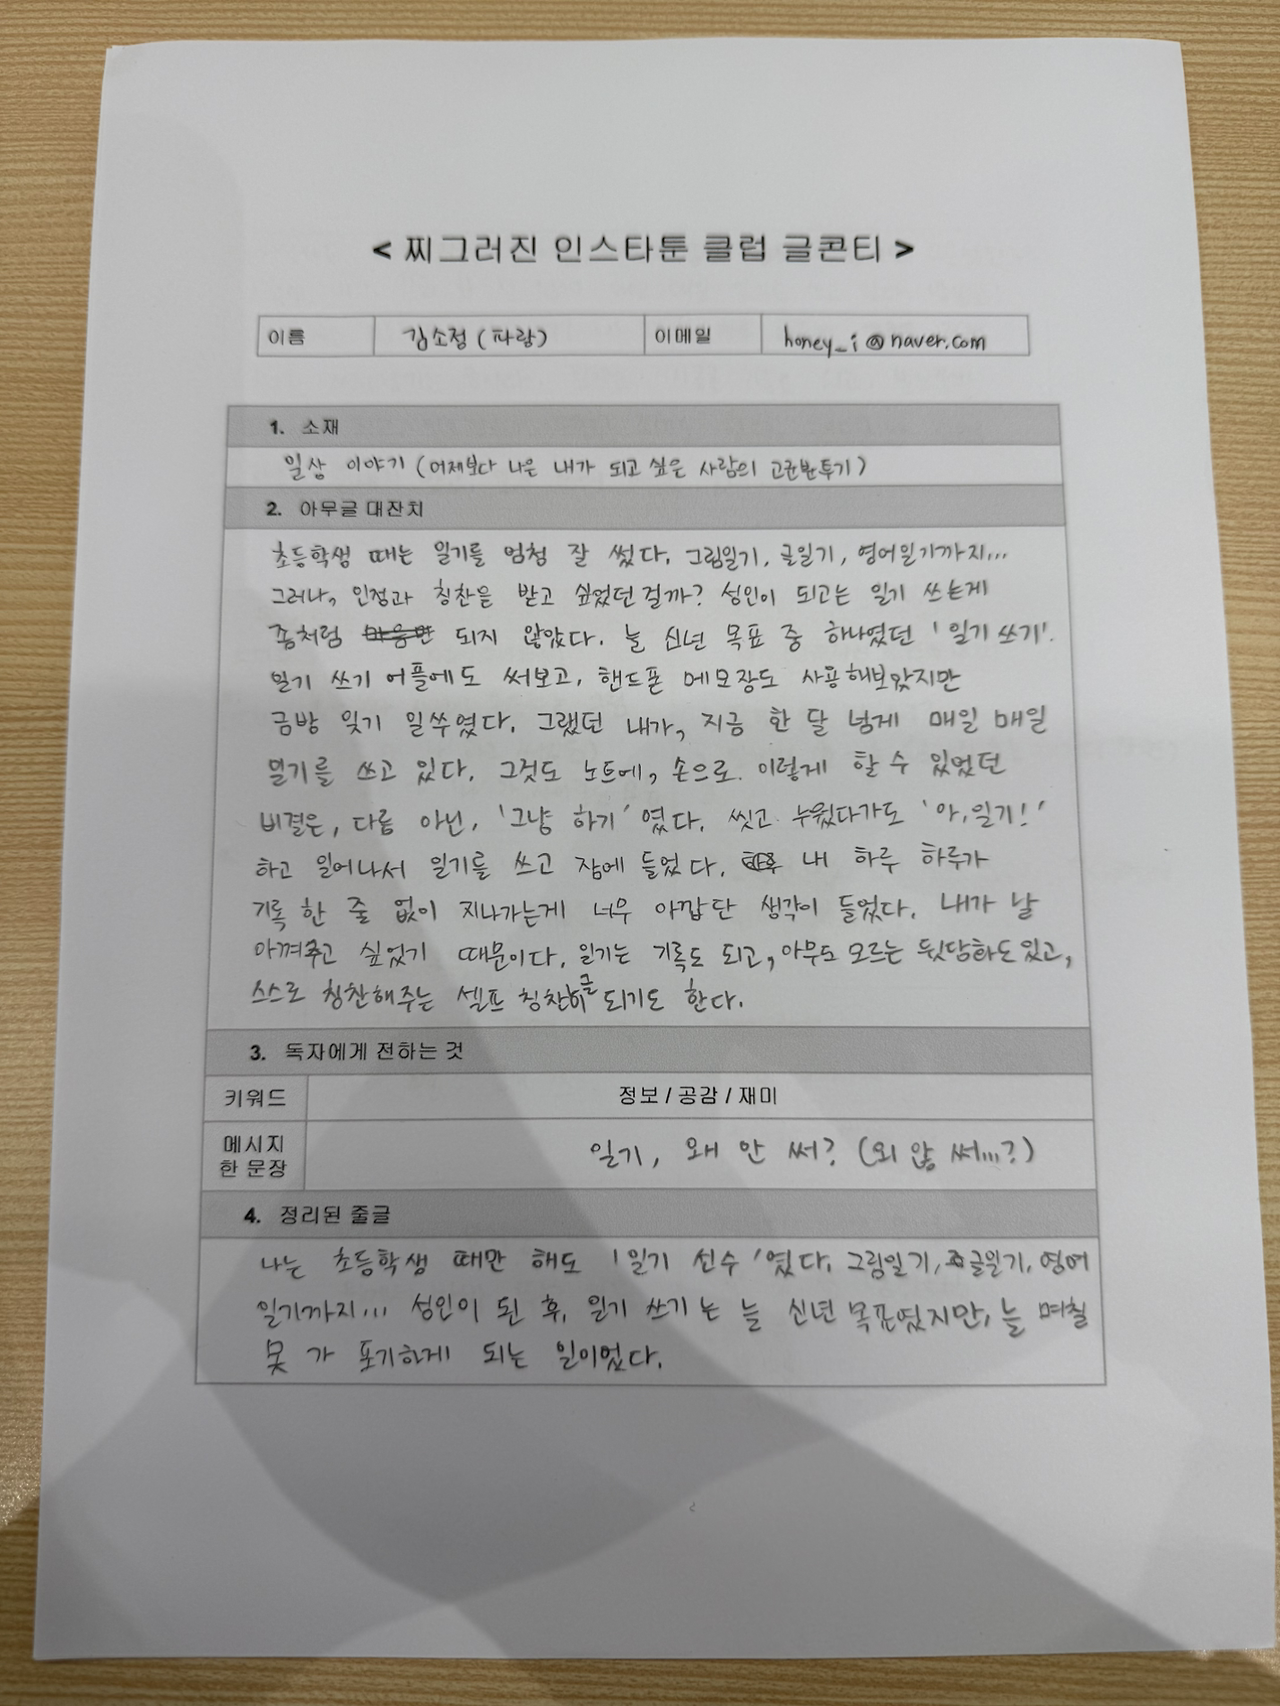 < 찌그러진 인스타툰 클럽 글콘티 >
이름 김소정 (파랑) 이메일 honey_i@naver.com
1. 소재
일상 이야기 (어제보다 나은 내가 되고 싶은 사람의 고군분투기)
2. 아무글 대잔치
초등학생 때는 일기를 엄청 잘 썼다. 그림일기, 글일기, 영어일기까지...
그러나, 인정과 칭찬을 받고 싶었던 걸까? 성인이 되고는 일기 쓰는게
좀처럼 되지 않았다. 늘 신년 목표 중 하나였던 '일기 쓰기'.
일기 쓰기 어플에도 써보고, 핸드폰 메모장도 사용해보았지만
금방 잊기 일쑤였다. 그랬던 내가, 지금 한 달 넘게 매일 매일
일기를 쓰고 있다. 그것도 노트에, 손으로. 이렇게 할 수 있었던
비결은, 다름 아닌, '그냥 하기'였다. 씻고 누웠다가도 '아, 일기!'
하고 일어나서 일기를 쓰고 잠에 들었다. 내 하루 하루가
기록 한 줄 없이 지나가는게 너무 아깝단 생각이 들었다. 내가 날
아껴주고 싶었기 때문이다. 일기는 기록도 되고, 아무도 모르는 뒷담화도 있고,
스스로 칭찬해주는 셀프 칭찬글이 되기도 한다.
3. 독자에게 전하는 것
키워드 정보 / 공감 / 재미
메시지
한 문장 일기, 왜 안 써? (외 않 써...?)
4. 정리된 줄글
나는 초등학생 때만 해도 '일기 선수'였다. 그림일기, 글일기, 영어
일기까지... 성인이 된 후, 일기 쓰기는 늘 신년 목표였지만, 늘 며칠
못 가 포기하게 되는 일이었다.